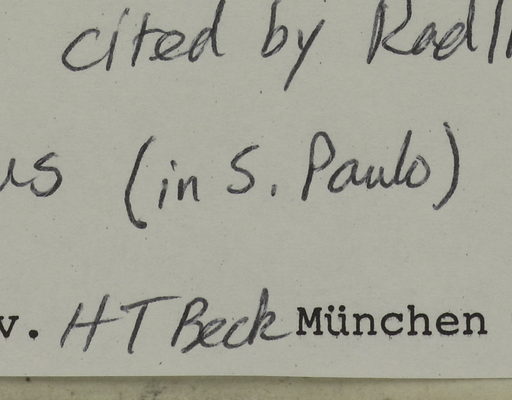 cited by Radl
(in S. Paulo)
v. H T Beck München